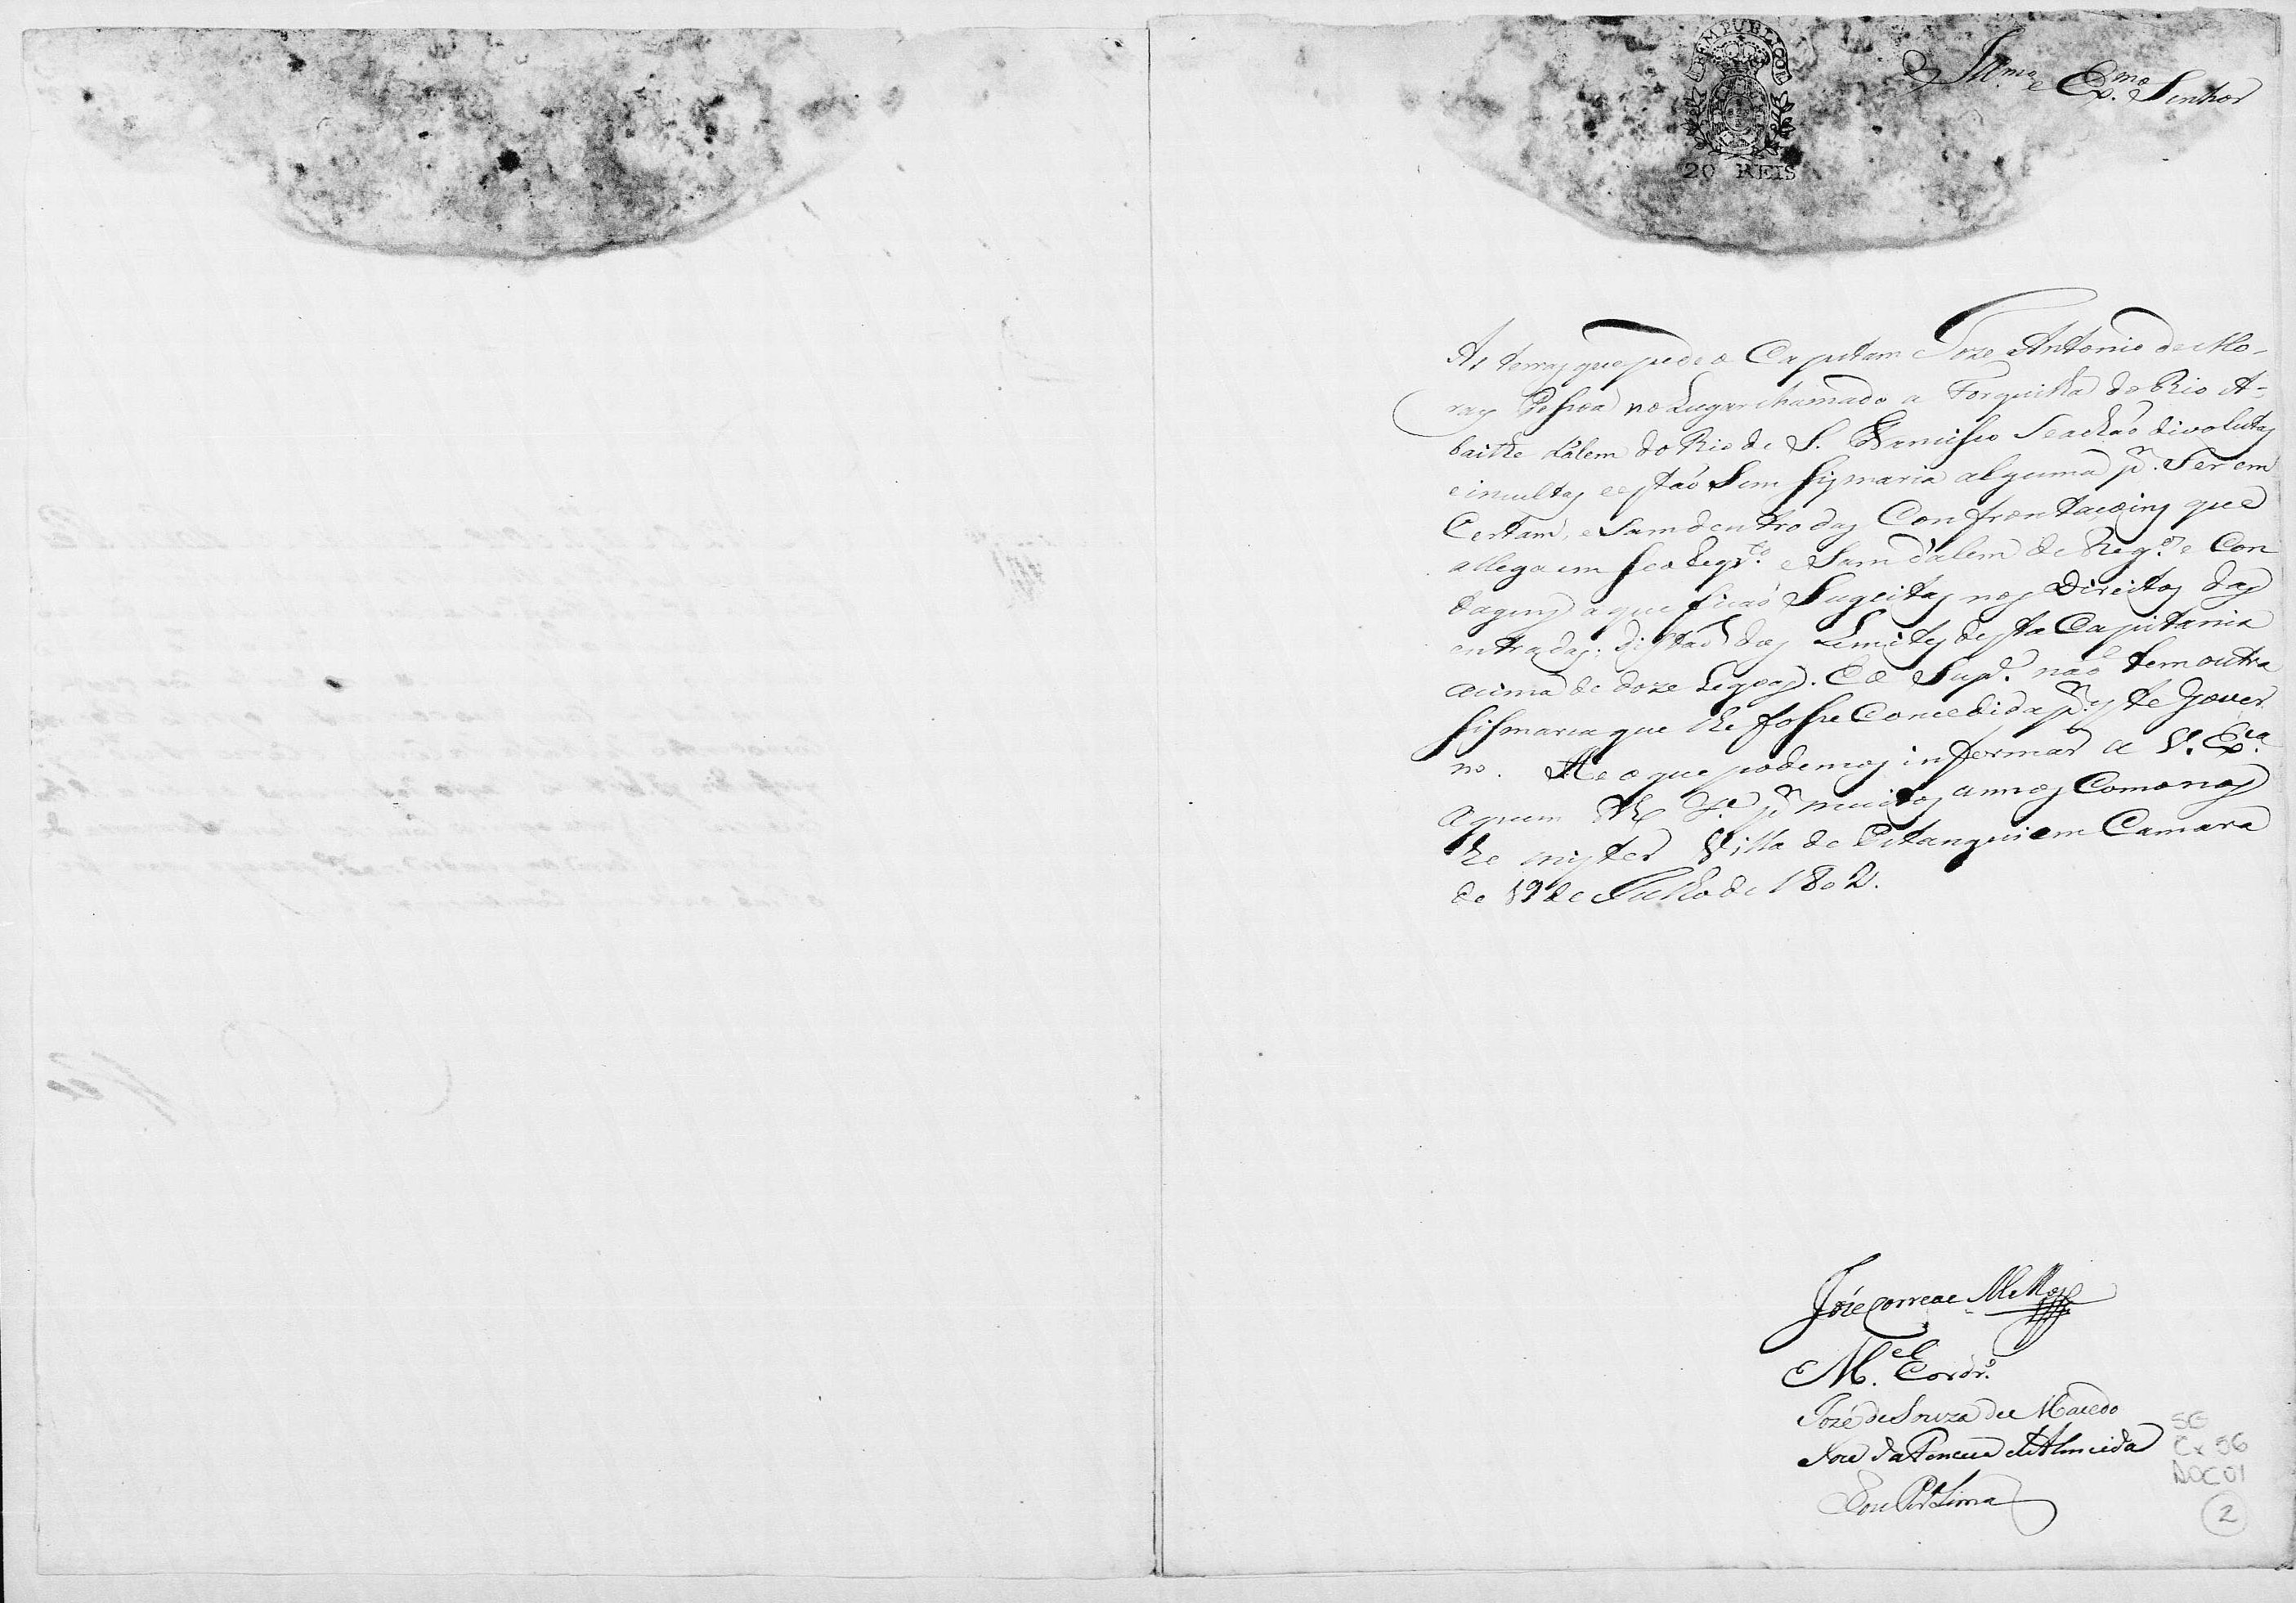 BEM PUBLICO
20 REIS
Ill.mo e Ex.mo Senhor
As terras que pede o Capitam Joze Antonio de Mo-
raes Pessoa no Lugar chamado a Forquilha do Rio A-
baithe dálem do Rio de S. Francisco Se achaõ divolutas
e incultas e estaõ Sem Sismaria alguma p.r Ser em
Certam, e Sam dentro das Confrontacoins que
allega em seo Reqr.to e Sam dálem de Reg.os e Con
tagens a que ficaõ Sugeitas nos Direitos das
entradas, distaõ dos Limites desta Capitania
acima de doze Legoas. E o Sup.e naõ tem outra
Sismaria que lhe fosse Concedida p.r este Gover
no. He o que podemos informar a V. Ex.ca
a quem D.s g.e p.r muitos annos Como nos
he mister Villa de Pitangui em Camara
de de Julho de 1802.
José Correa e Mello
M.el Cordr.o
Jozé de Souza de Macedo
Joze da Fonceca de Almeida
Joze Lima
SG
Cx 56
DOC 01
2